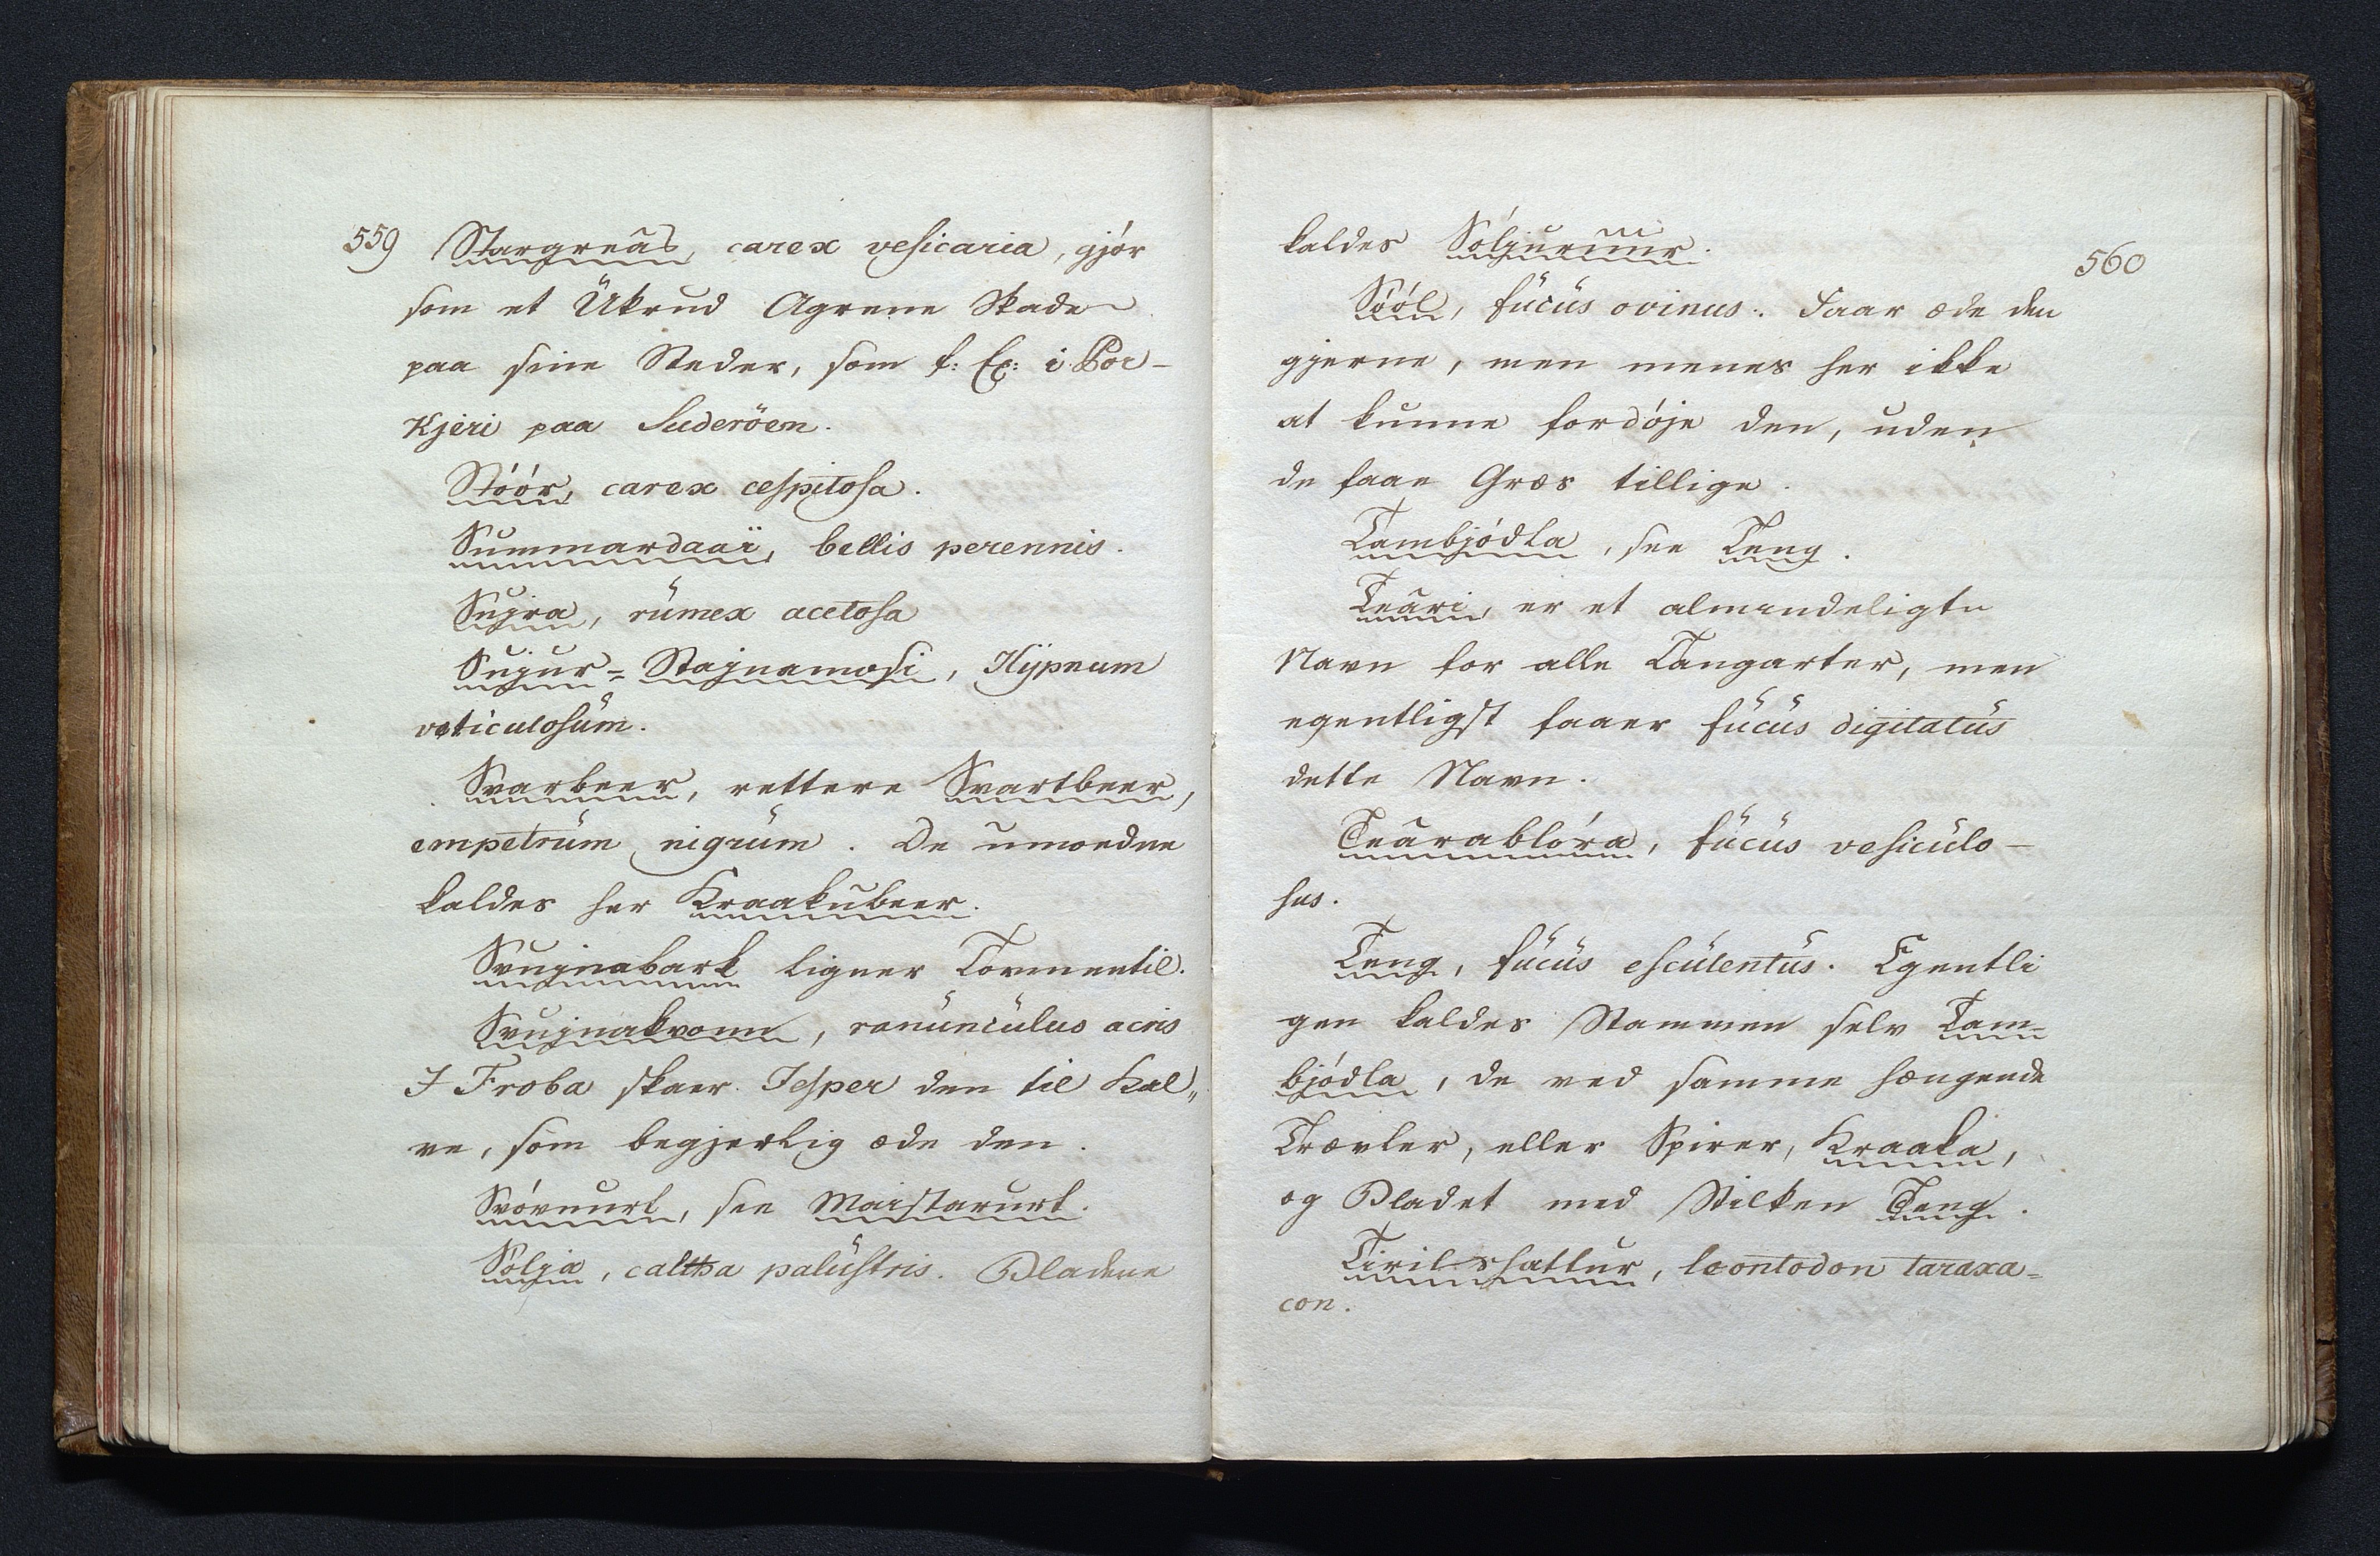 559 Stargreâs, carex vesicaria, gjör
som et Ükrud Agrene Skade
paa sine Steder, som f: Ex: i Por-
kjeri paa Suderöen.
Stóór, carex cespitosa.
Summardaaï, bellis perennis.
Sujra, rümex acetosa
Sujur- Stajnamosi, Hÿpnum
veticulosüm.
Svarbeer, rettere Svartbeer,
empetrüm nigrüm. De umodne
kaldes her Kraakubeer.
Svujnabark ligner Tormentil.
Svujnakvonn, ranüncülus acris
I Froba skaer Jesper den til Kal,,
ve, som begjerlig æde den.
Svóvuurt, see Maistarurt.
Sólja, caltha palüstris. Bladene
560
kaldes Sóljuruur.
Sööl, fücüs ovinus. Faar æde den
gjerne, men menes her ikke
at kunne fordöje den, uden
de faae Græs tillige.
Tambjódla, see Teng.
Teâri, er et almindeligte
Navn for alle Tangarter, men
egentligst faaer fücüs digitatüs
dette Navn.
Teârablóra, fücüs vesicülo-
sus.
Teng, fücüs escülentüs. Egentli
gen kaldes Stammen selv Tam-
bjódla, de ved samme hængende
Trævler, eller Spirer, Kraaka,
og Bladet med Stilken Teng.
Tirilshattur, leontodon taraxa-
con.